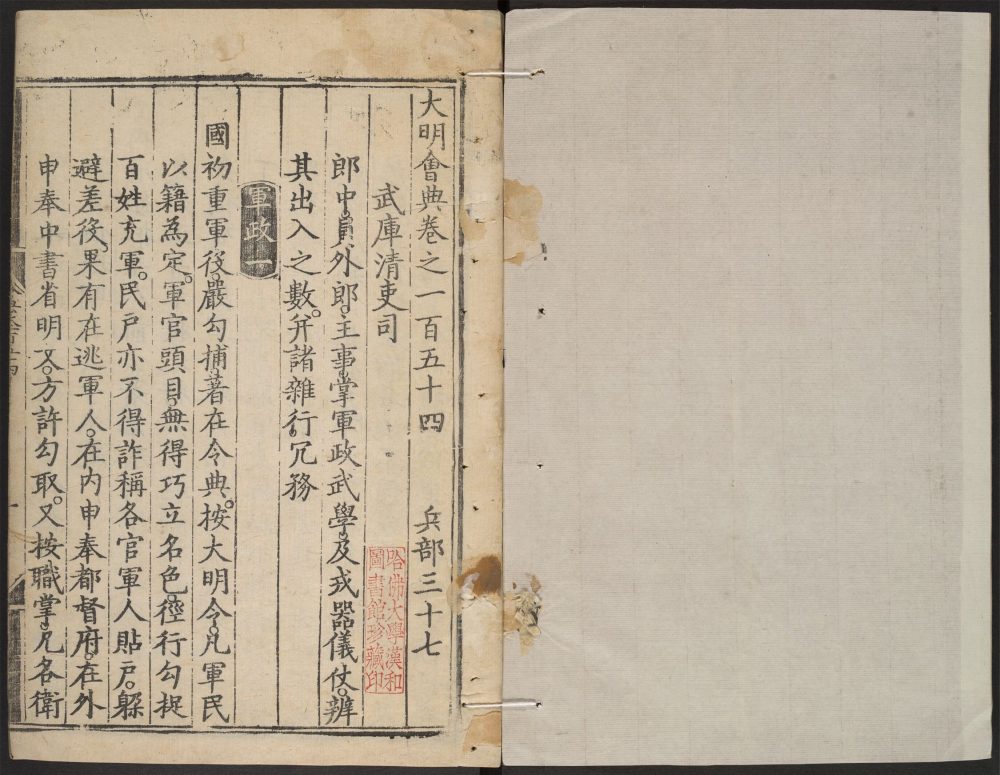 大明會典卷之一百五十四 兵部三十七
武庫清吏司
郎中員外郎。主事。掌軍政武學。及戎器儀仗。辨
其出入之數。并諸雜行冗務
軍政一
國初重軍役。嚴勾捕。著在令典。按大明令。凡軍民
以籍為定。軍官頭目。無得巧立名色。徑行勾捉
百姓充軍。民戶亦不得詐稱各官軍人貼戶。躲
避差役。果有在逃軍人。在內申奉都督府。在外
申奉中書省明文。方許勾取。又按職掌。凡各衛
哈佛大學漢和
圖書館珍藏印